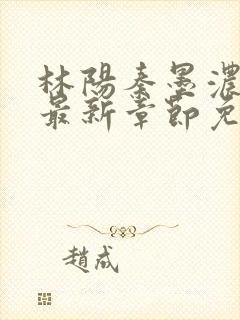 林陽秦墨濃
最新章節免
趙成